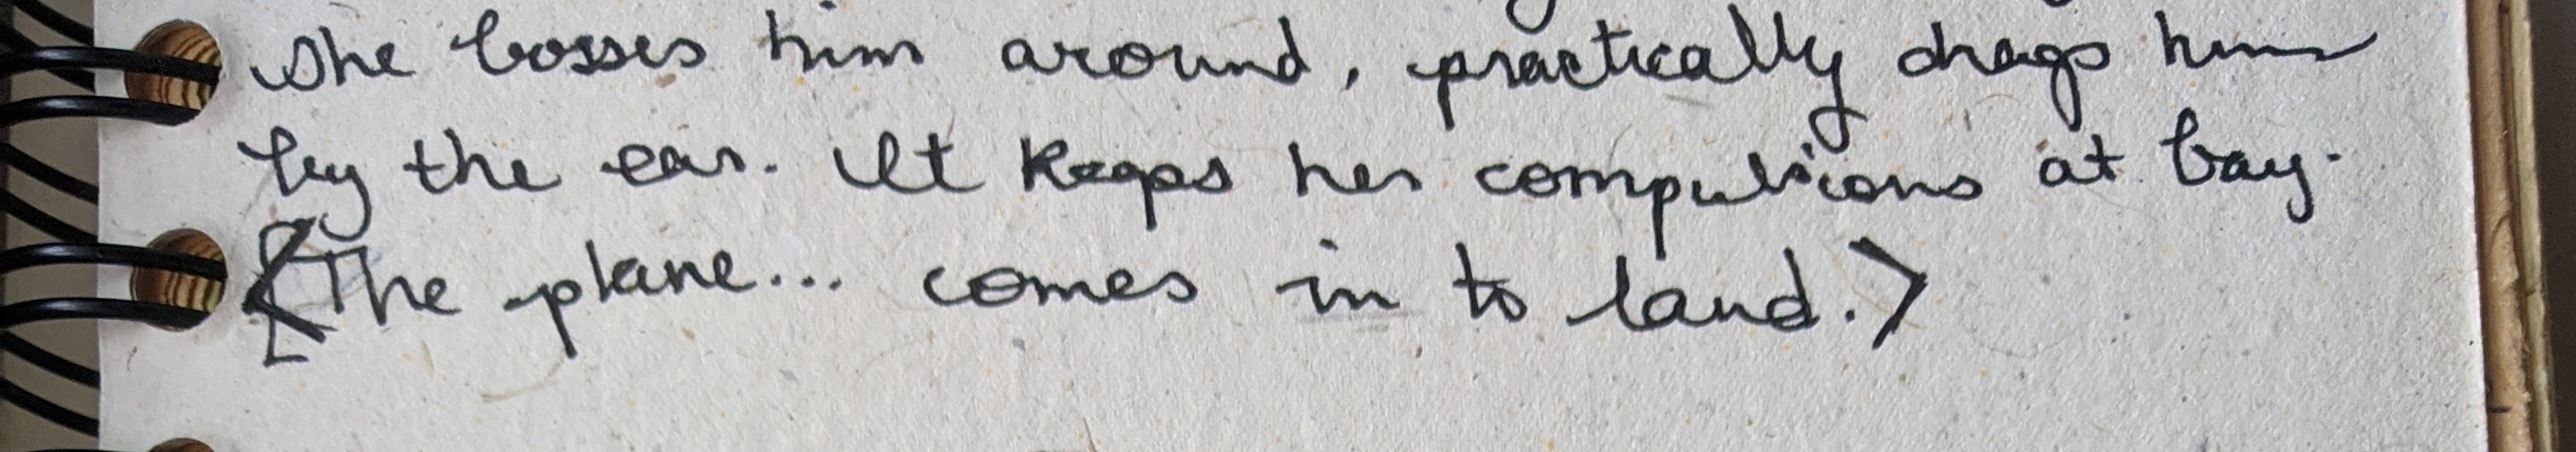 She bosses him around, practically drags him
by the ear. It keeps her compulsions at bay.
<The plane... comes in to land.>